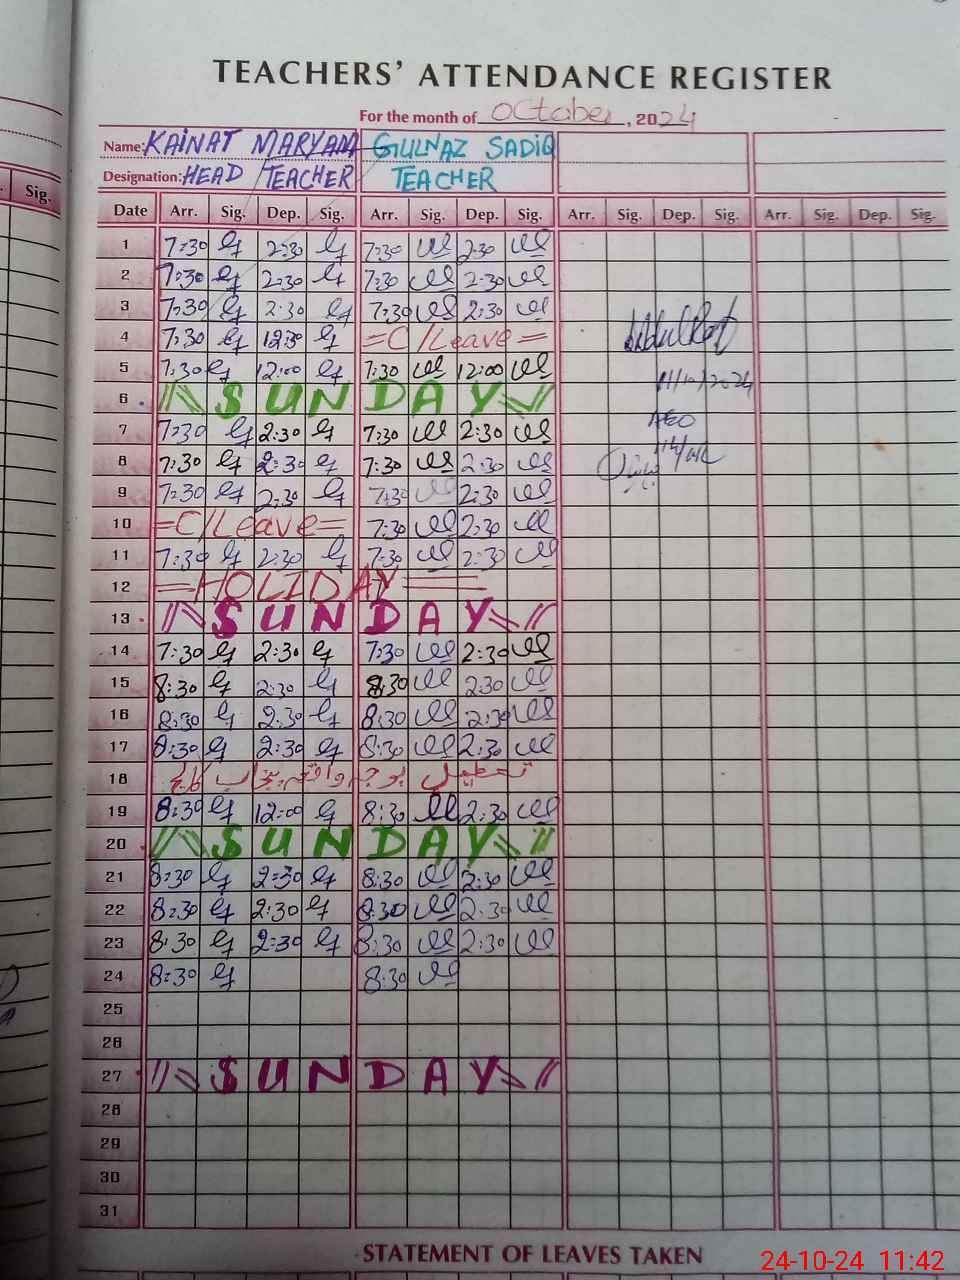 TEACHERS' ATTENDANCE REGISTER
For the month of October, 2024
Name: KAINAT MARYAM GULNAZ SADIQ
Designation: HEAD TEACHER TEACHER
Sig.
Date Arr. Sig. Dep. Sig. Arr. Sig. Dep. Sig. Arr. Sig. Dep. Sig. Arr. Sig. Dep. Sig.
1 7:30 2:30 7:30 2:30
2 7:30 2:30 7:30 2:30
3 7:30 2:30 7:30 2:30
4 7:30 12:30 =C/Leave=
5 7:30 12:00 7:30 12:00
11/10/2024
6 SUNDAY
AEO
7 7:30 2:30 7:30 2:30
8 7:30 2:30 7:30 2:30
9 7:30 2:30 7:30 2:30
10 =C/Leave= 7:30 2:30
11 7:30 2:30 7:30 2:30
12 =HOLIDAY=
13 SUNDAY
14 7:30 2:30 7:30 2:30
15 8:30 2:30 8:30 2:30
16 8:30 2:30 8:30 2:30
17 8:30 2:30 8:30 2:30
18 تعطیل
19 8:30 12:00 8:30 2:30
20 SUNDAY
21 8:30 2:30 8:30 2:30
22 8:30 2:30 8:30 2:30
23 8:30 2:30 8:30 2:30
24 8:30 8:30
25
26
27 SUNDAY
28
29
30
31
STATEMENT OF LEAVES TAKEN
24-10-24 11:42